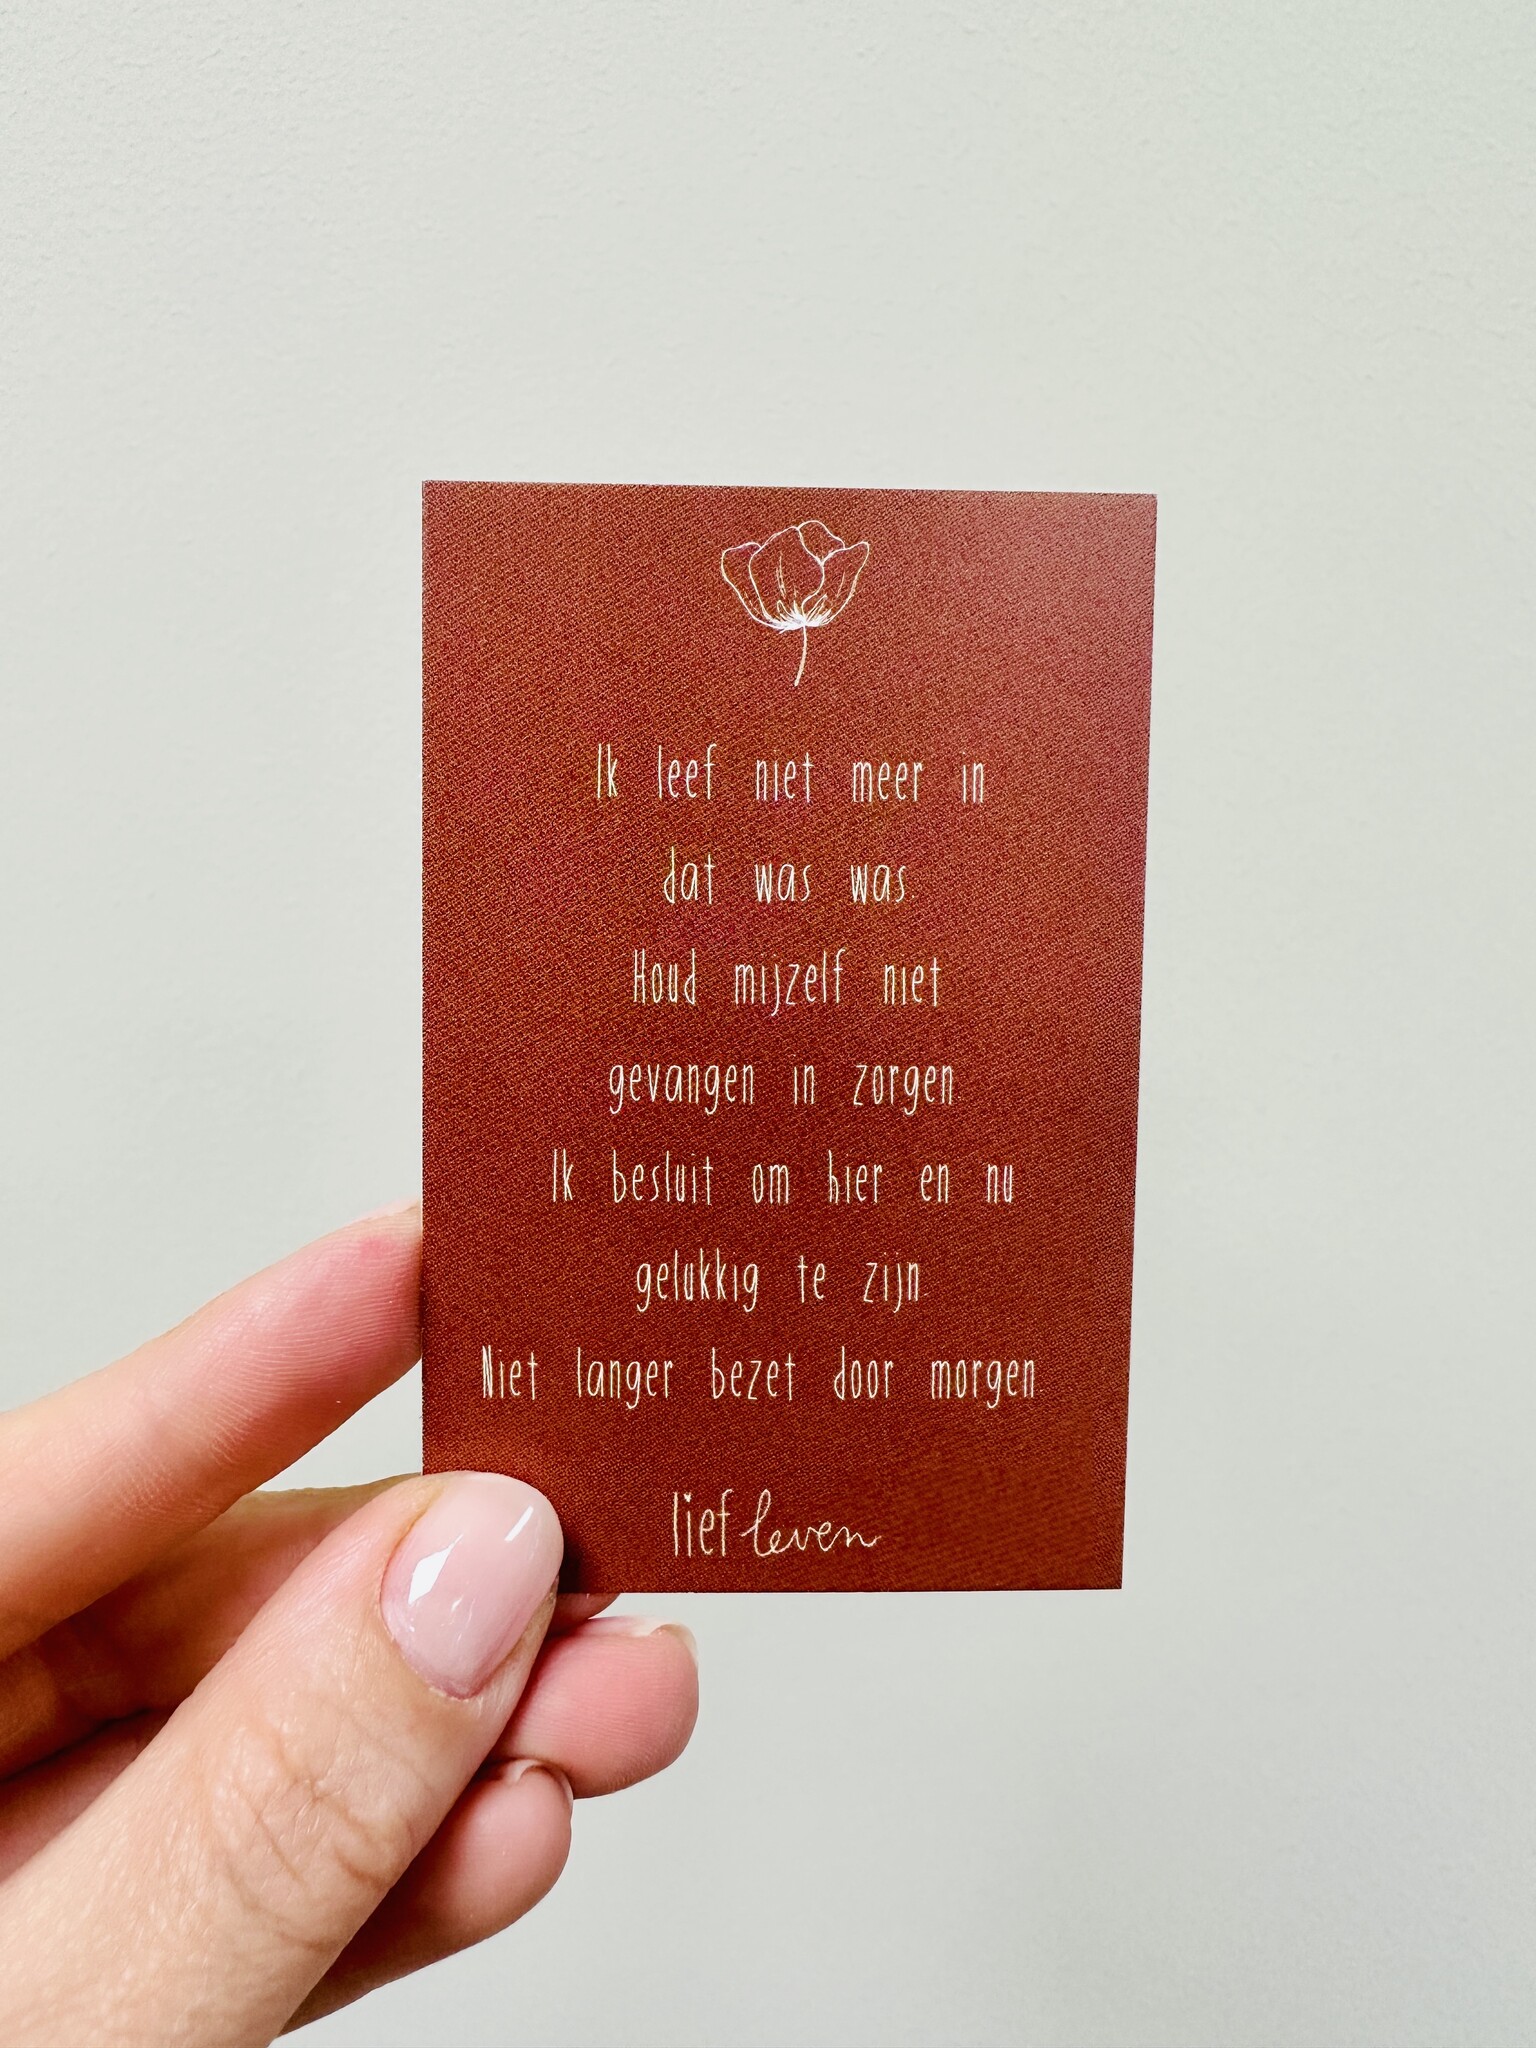 Ik leef niet meer in
dat was was.
Houd mijzelf niet
gevangen in zorgen
Ik besluit om hier en nu
gelukkig te zijn.
Niet langer bezet door morgen.
lief leven